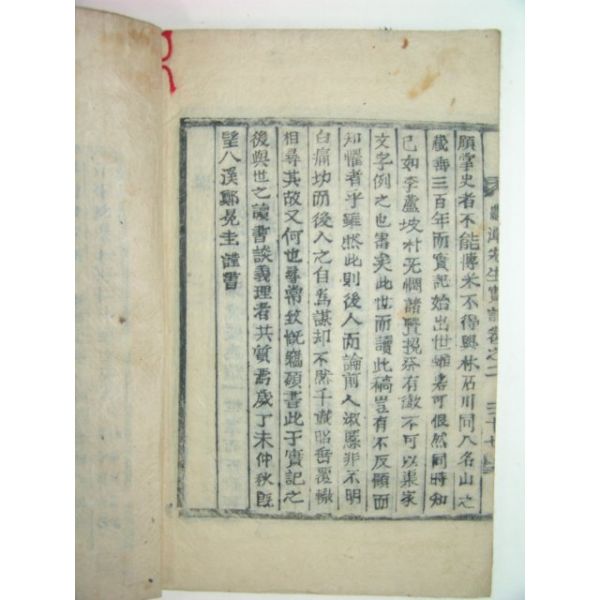 先生實記卷之二 三十七
顧掌史者不能傳米不得與林石川同入名山之
藏壽三百年而實記始出世雖若可恨然同時知
己如李盧坡村无憫諸賢挽祭有徵不可以渠家
文字例之也當矣此世而讀此稿豈有不反顧而
知懼者乎雖然此則後人而論前人淑慝非不明
白痛切而後人之自爲謀却不然千載昭昭覆轍
相尋其故又何也尋常致慨竊願書此于實記之
後與世之讀書談義理者共質焉歲丁未仲秋旣
望八溪鄭冕圭謹書